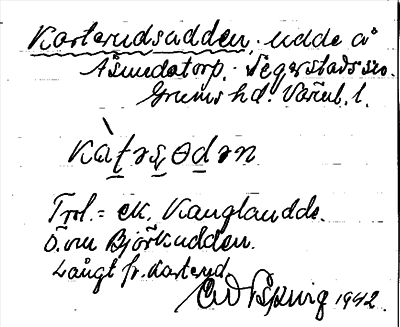 Karterudsudden, udde å
Åsundatorp, Segerstads sn.
Grums hd. Värml. l.
kàt̠əs̠ɵd̠ən
Trol. = ek. Kanglandde.
Ö. om Björkudden.
Långt fr. Karterud
1942.